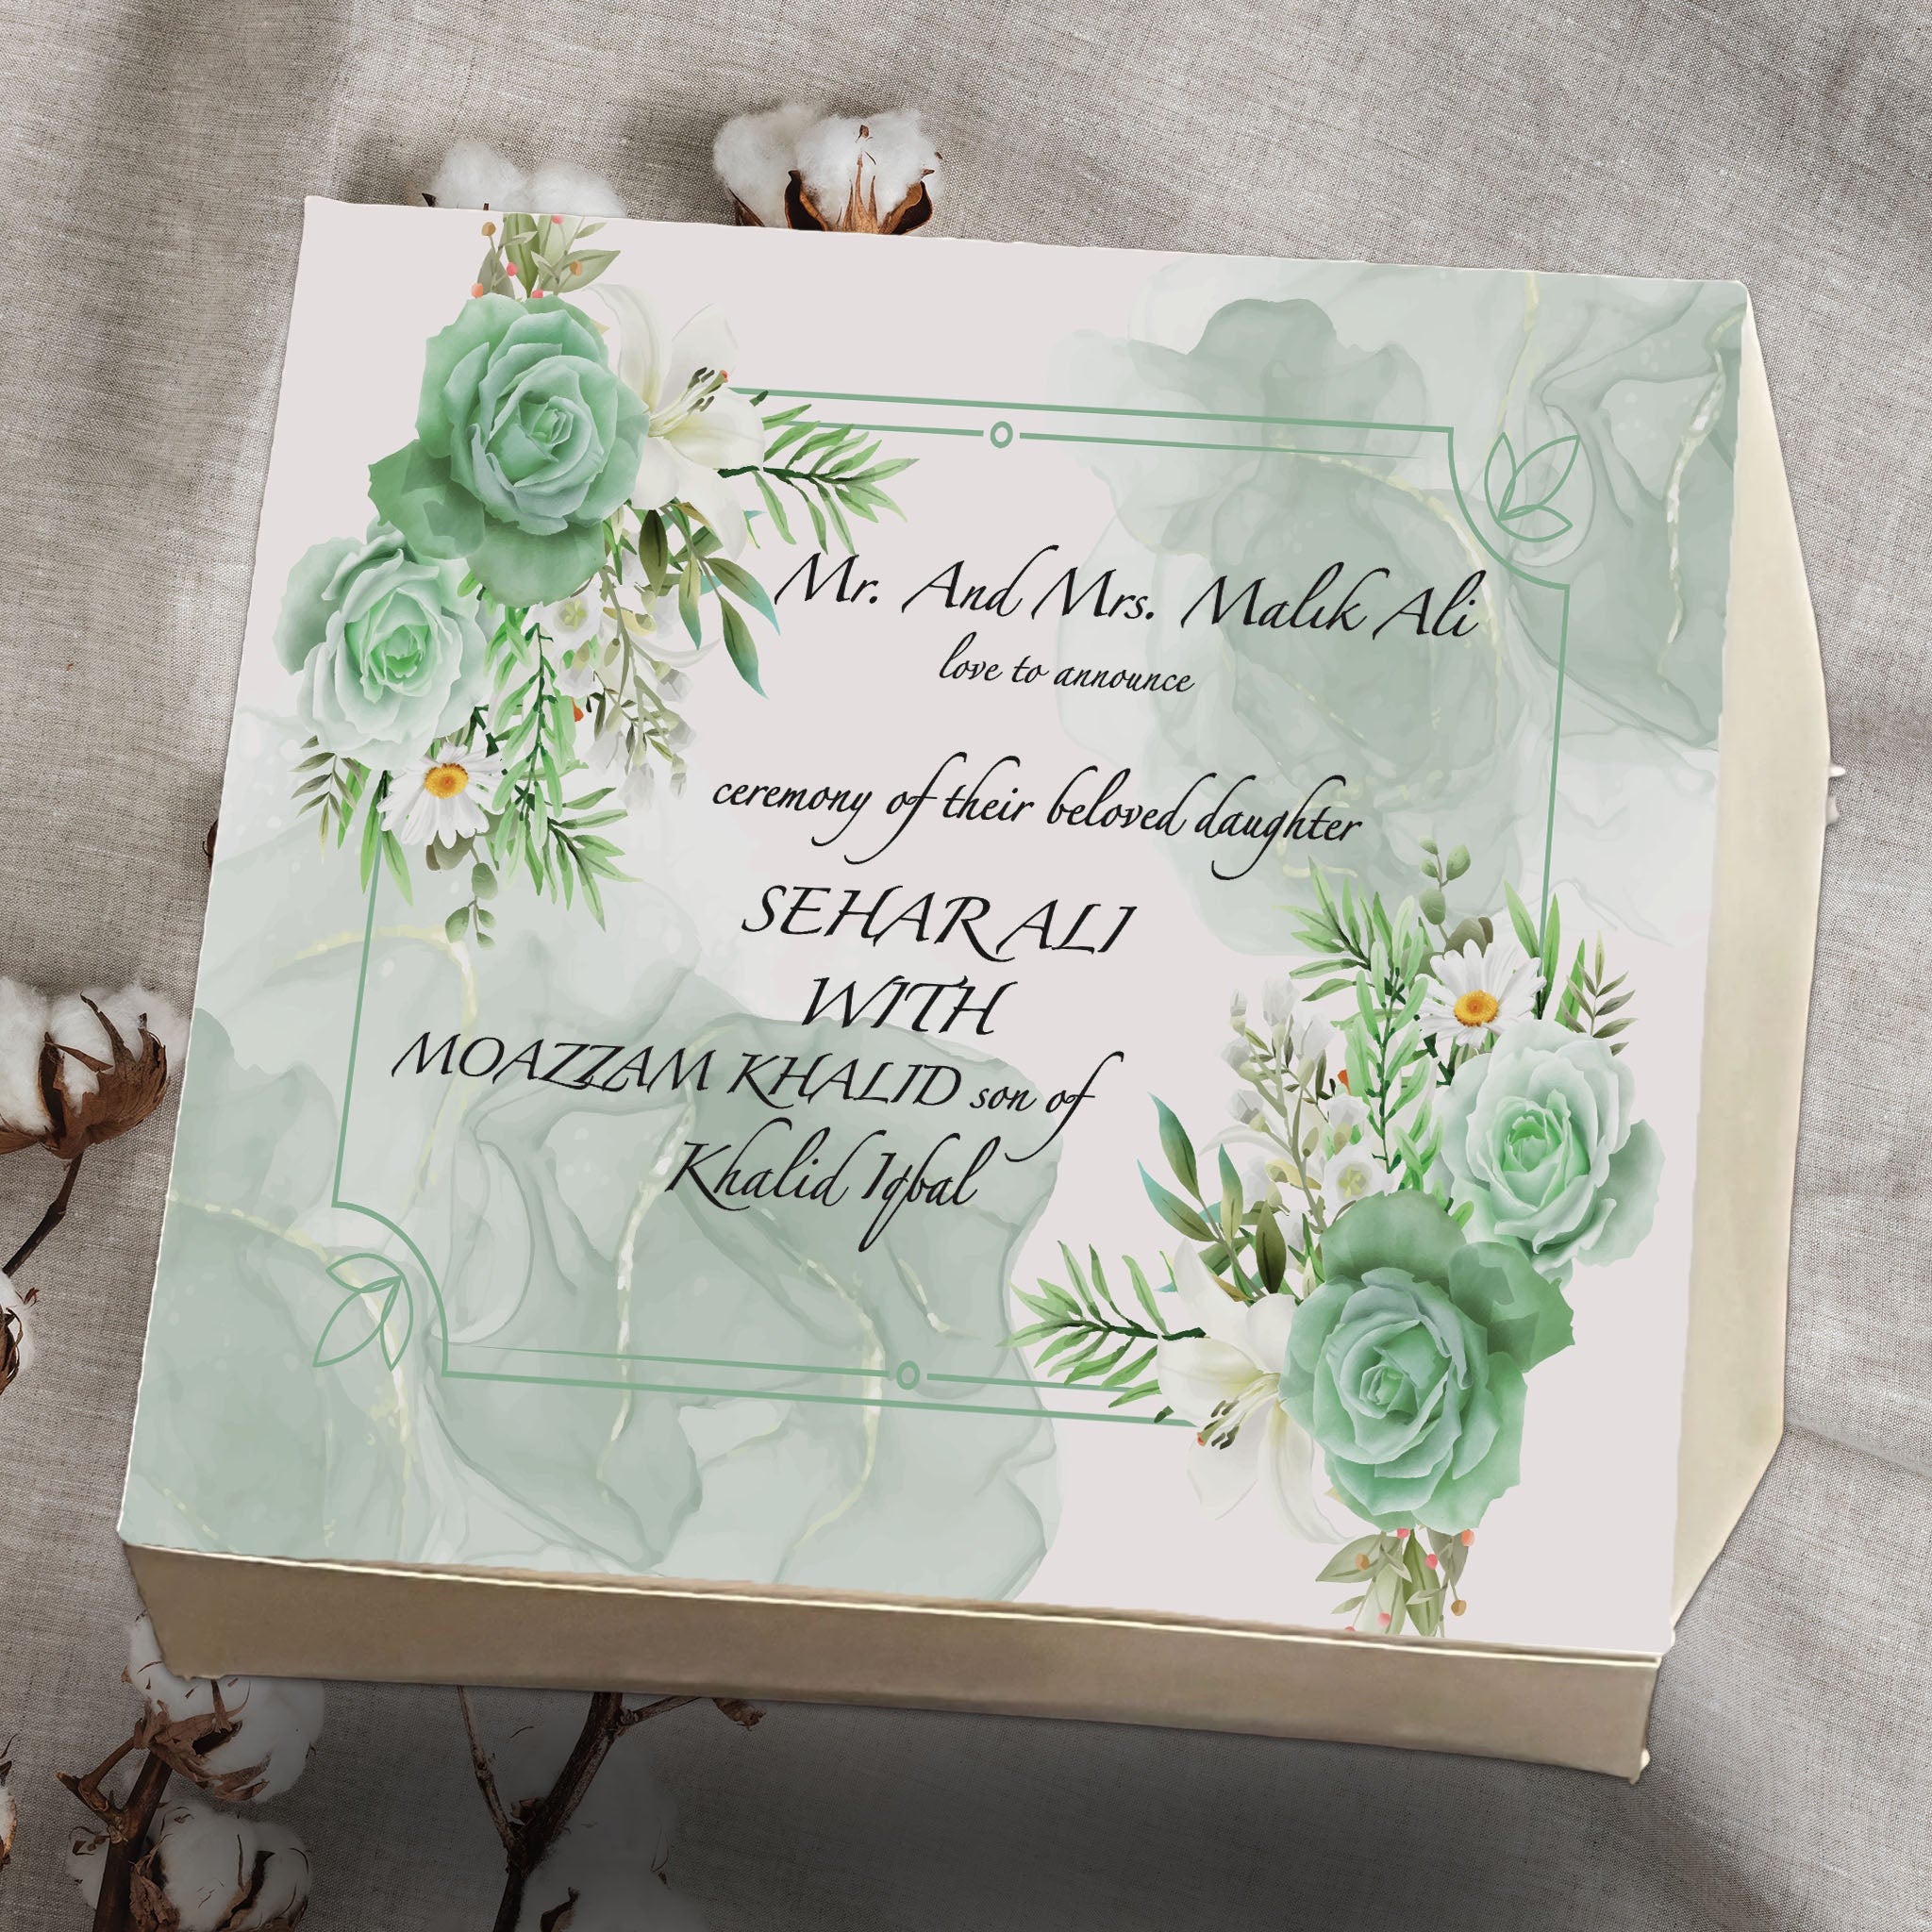 Mr. And Mrs. Malik Ali
love to announce
ceremony of their beloved daughter
SEHAR ALI
WITH
MOAZZAM KHALID son of
Khalid Iqbal